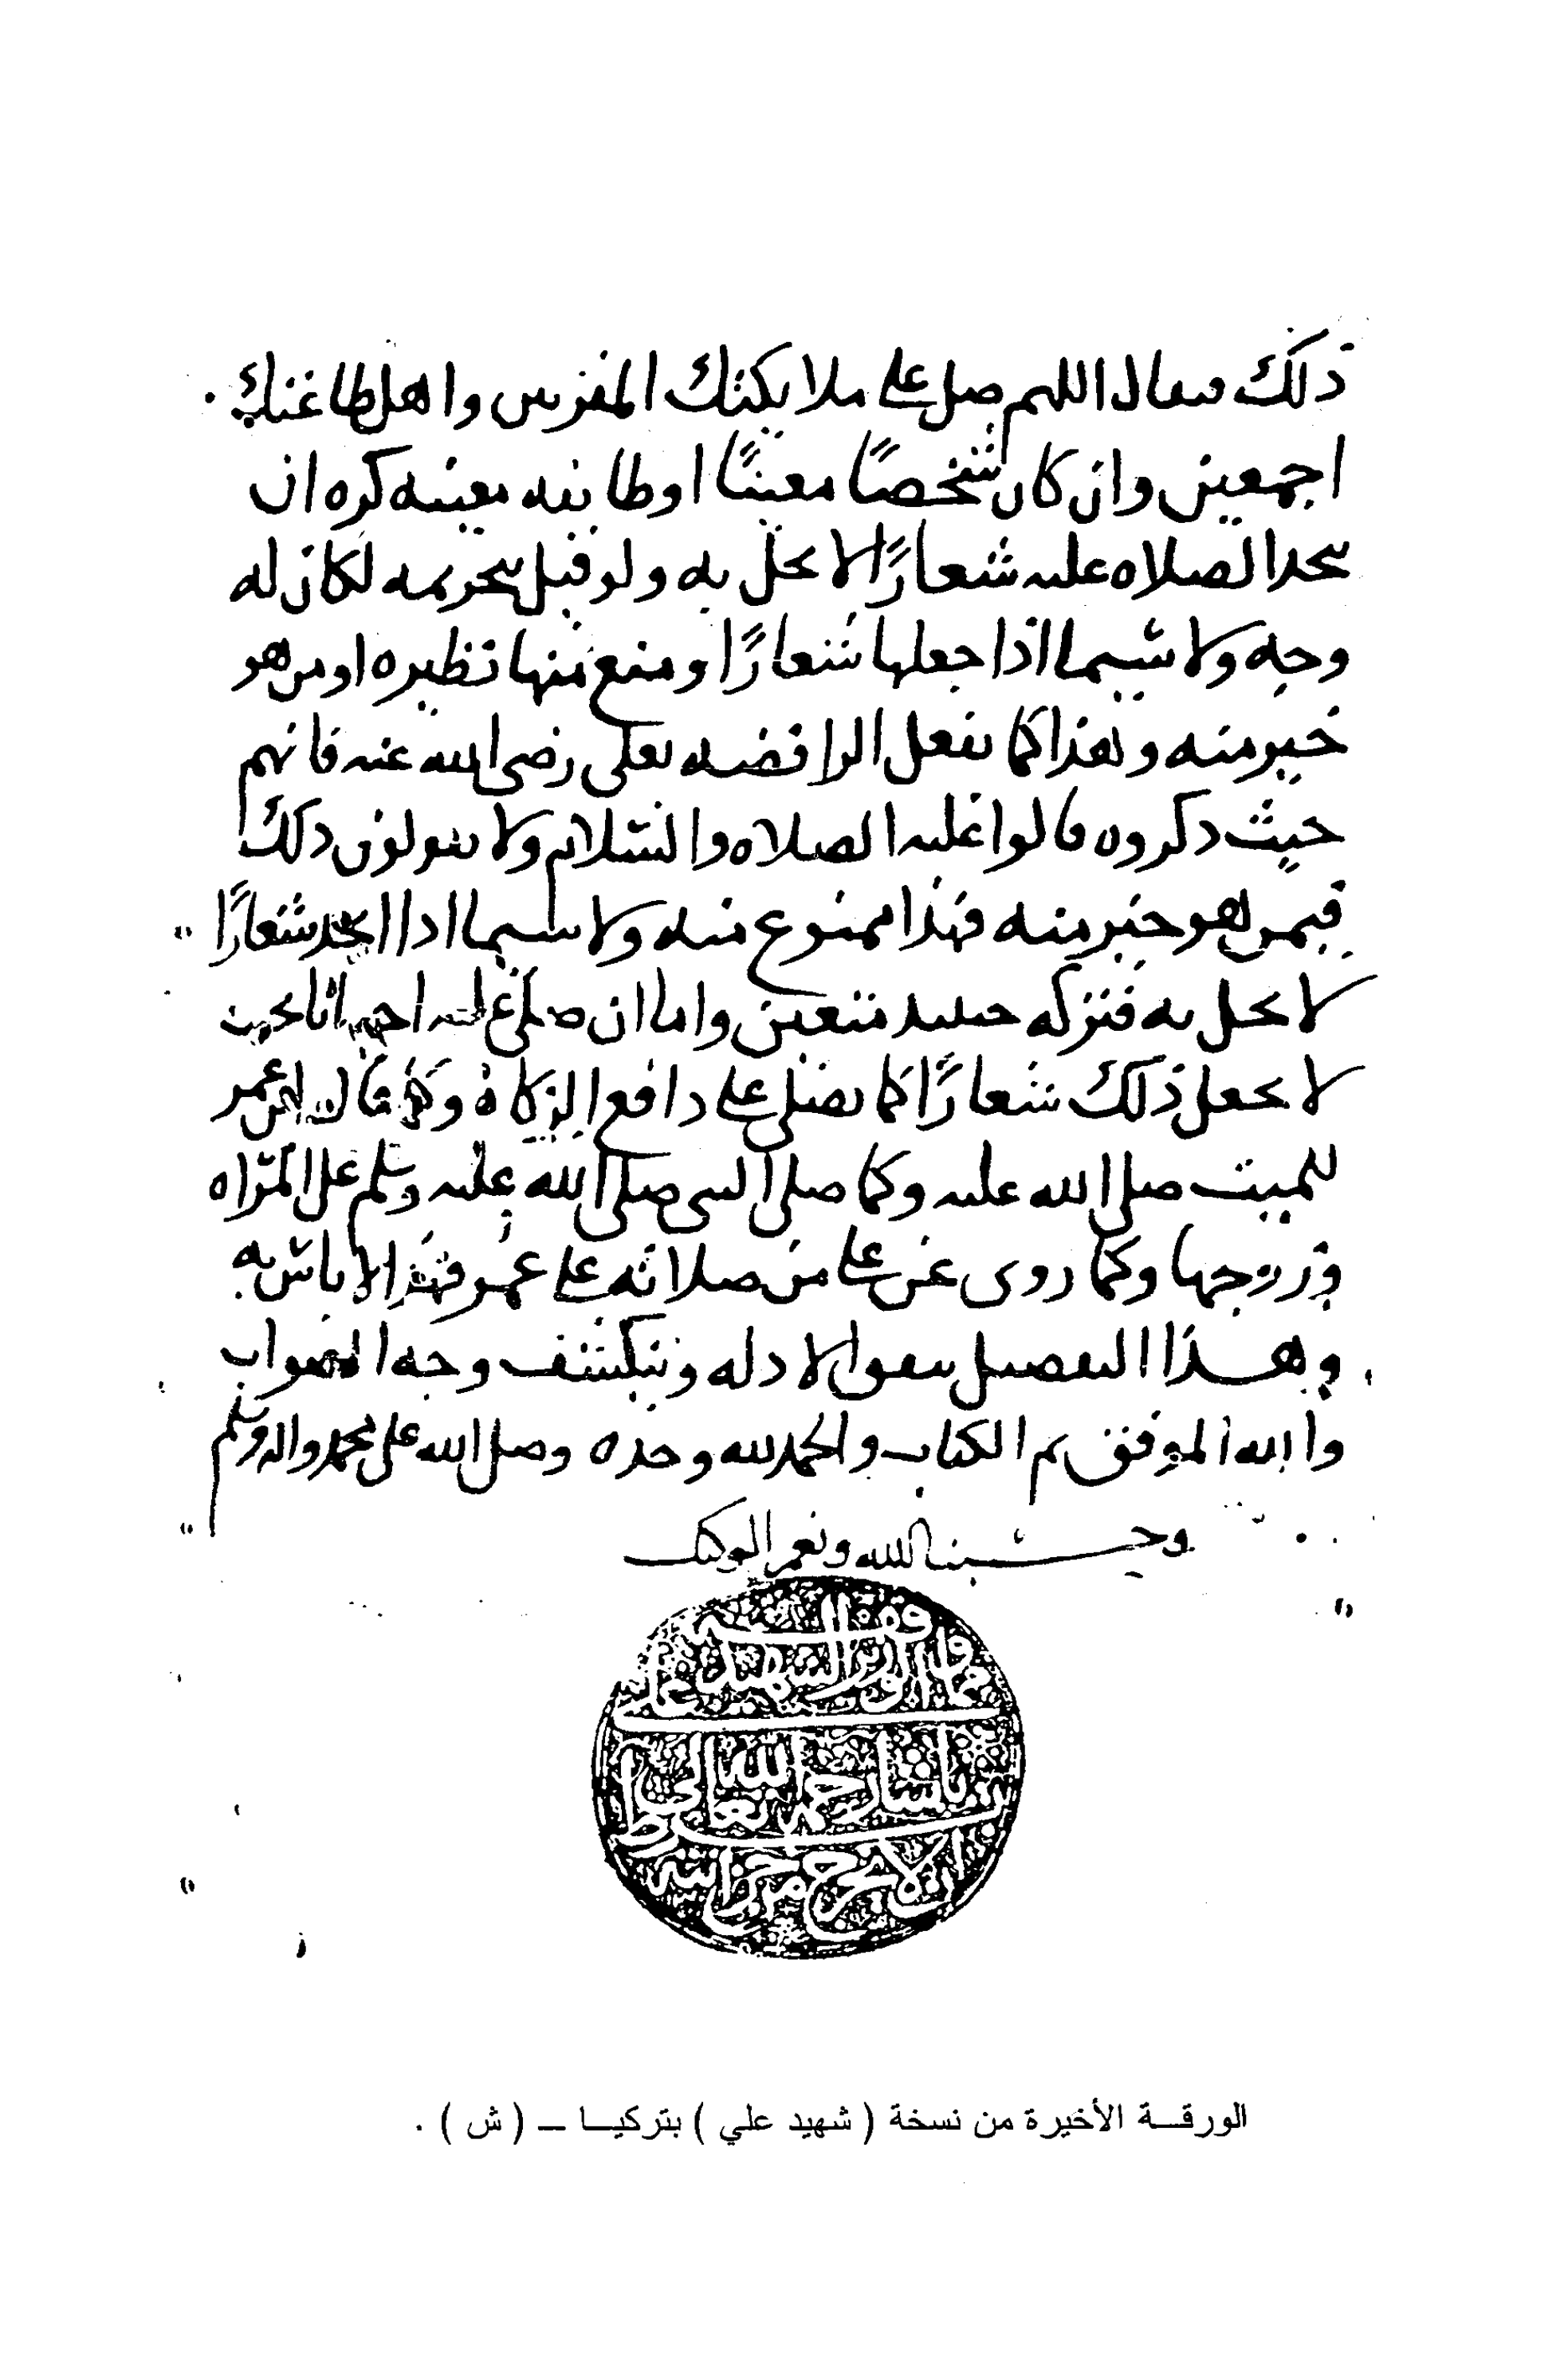 ذلك فيقال اللهم صل على ملايكتك المقربين واهل طاعتك
اجمعين وان كان شخصًا معينًا او طايفه معينه كره ان
يتخذ الصلاه عليه شعارًا لا يخل به ولو قيل بتحريمه لكان له
وجه ولا سيما اذا جعلها شعارًا ومنع منها نظيره او من هو
خير منه وهذا كما تفعل الرافضه بعلي رضي الله عنه فانهم
حيث ذكروه قالوا عليه الصلاه والسلام ولا يقولون ذلك
فيمن هو خير منه فهذا ممنوع منه ولا سيما اذا اتخذ شعارًا
لا يخل به فتركه حينيذ متعين واما ان صلى عليه احيانا بحيث
لا يجعل ذلك شعارًا كما يصلى على دافع الزكاة وكما قال ابن عمر
للميت صلى الله عليه وكما صلى النبي صلى الله عليه وسلم على المراه
وزوجها وكما روي عن علي من صلاته على عمر فهذا لا باس به
وبهذا التفصيل تتفق الادله وينكشف وجه الصواب
والله الموفق تم الكتاب والحمد لله وحده وصلى الله على محمد واله وسلم
وحسبنا الله ونعم الوكيل
الورقة الأخيرة من نسخة ( شهيد علي ) بتركيا – ( ش ) .